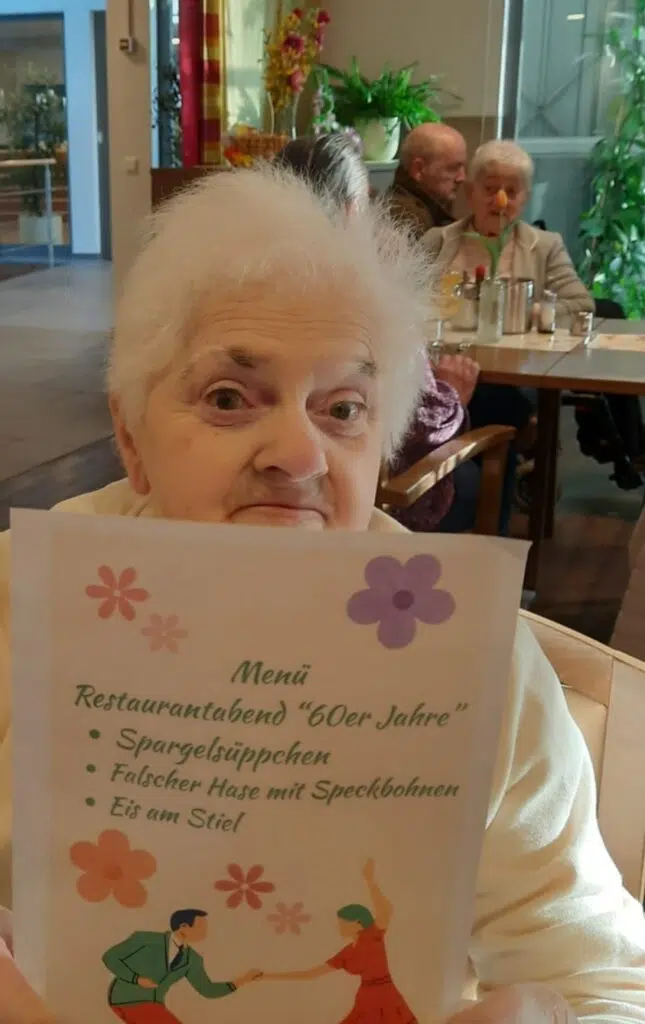 Menü
Restaurantabend “60er Jahre”
• Spargelsüppchen
• Falscher Hase mit Speckbohnen
• Eis am Stiel